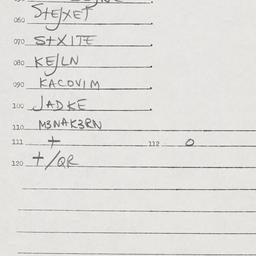 060 StEJXET
070 StXITE
080 KEJLN
090 KACOVIM
100 JADKE
110 M3NAK3RN
111 + 112 O
120 +/QR